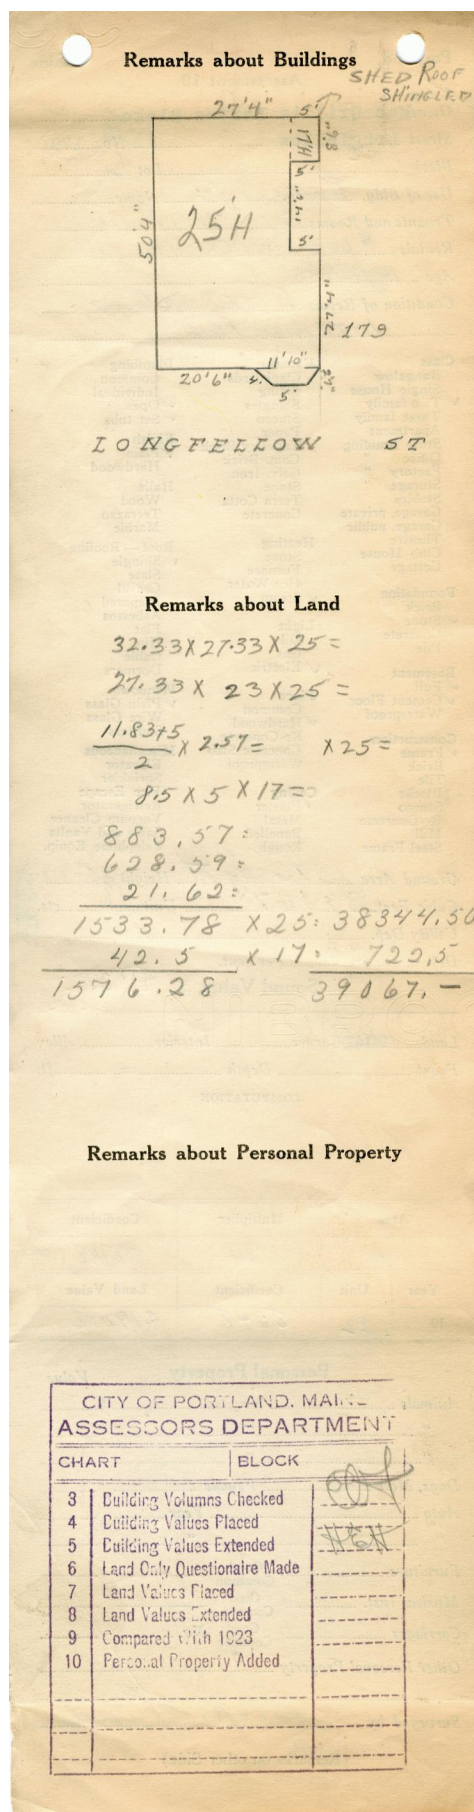 Remarks about Buildings
SHED ROOF
SHINGLED
27'4" 5'
8'6"
17'H
5'
25'H
50'4"
14'2"
5'
27'4"
179
11'10"
20'6" 4' 5'
LONGFELLOW ST
Remarks about Land
32.33 X 27.33 X 25 =
27.33 X 23 X 25 =
11.83+5
2
X 2.57 = X 25 =
8.5 X 5 X 17 =
883.57:
628.59:
21.62:
1533.78 X 25: 38344.50
42.5 X 17: 722,5
1576.28 39067.—
Remarks about Personal Property
CITY OF PORTLAND, MAINE
ASSESSORS DEPARTMENT
CHART BLOCK
3 Building Volumns Checked
4 Building Values Placed
5 Building Values Extended
6 Land Only Questionaire Made
7 Land Values Placed
8 Land Values Extended
9 Compared With 1923
10 Personal Property Added